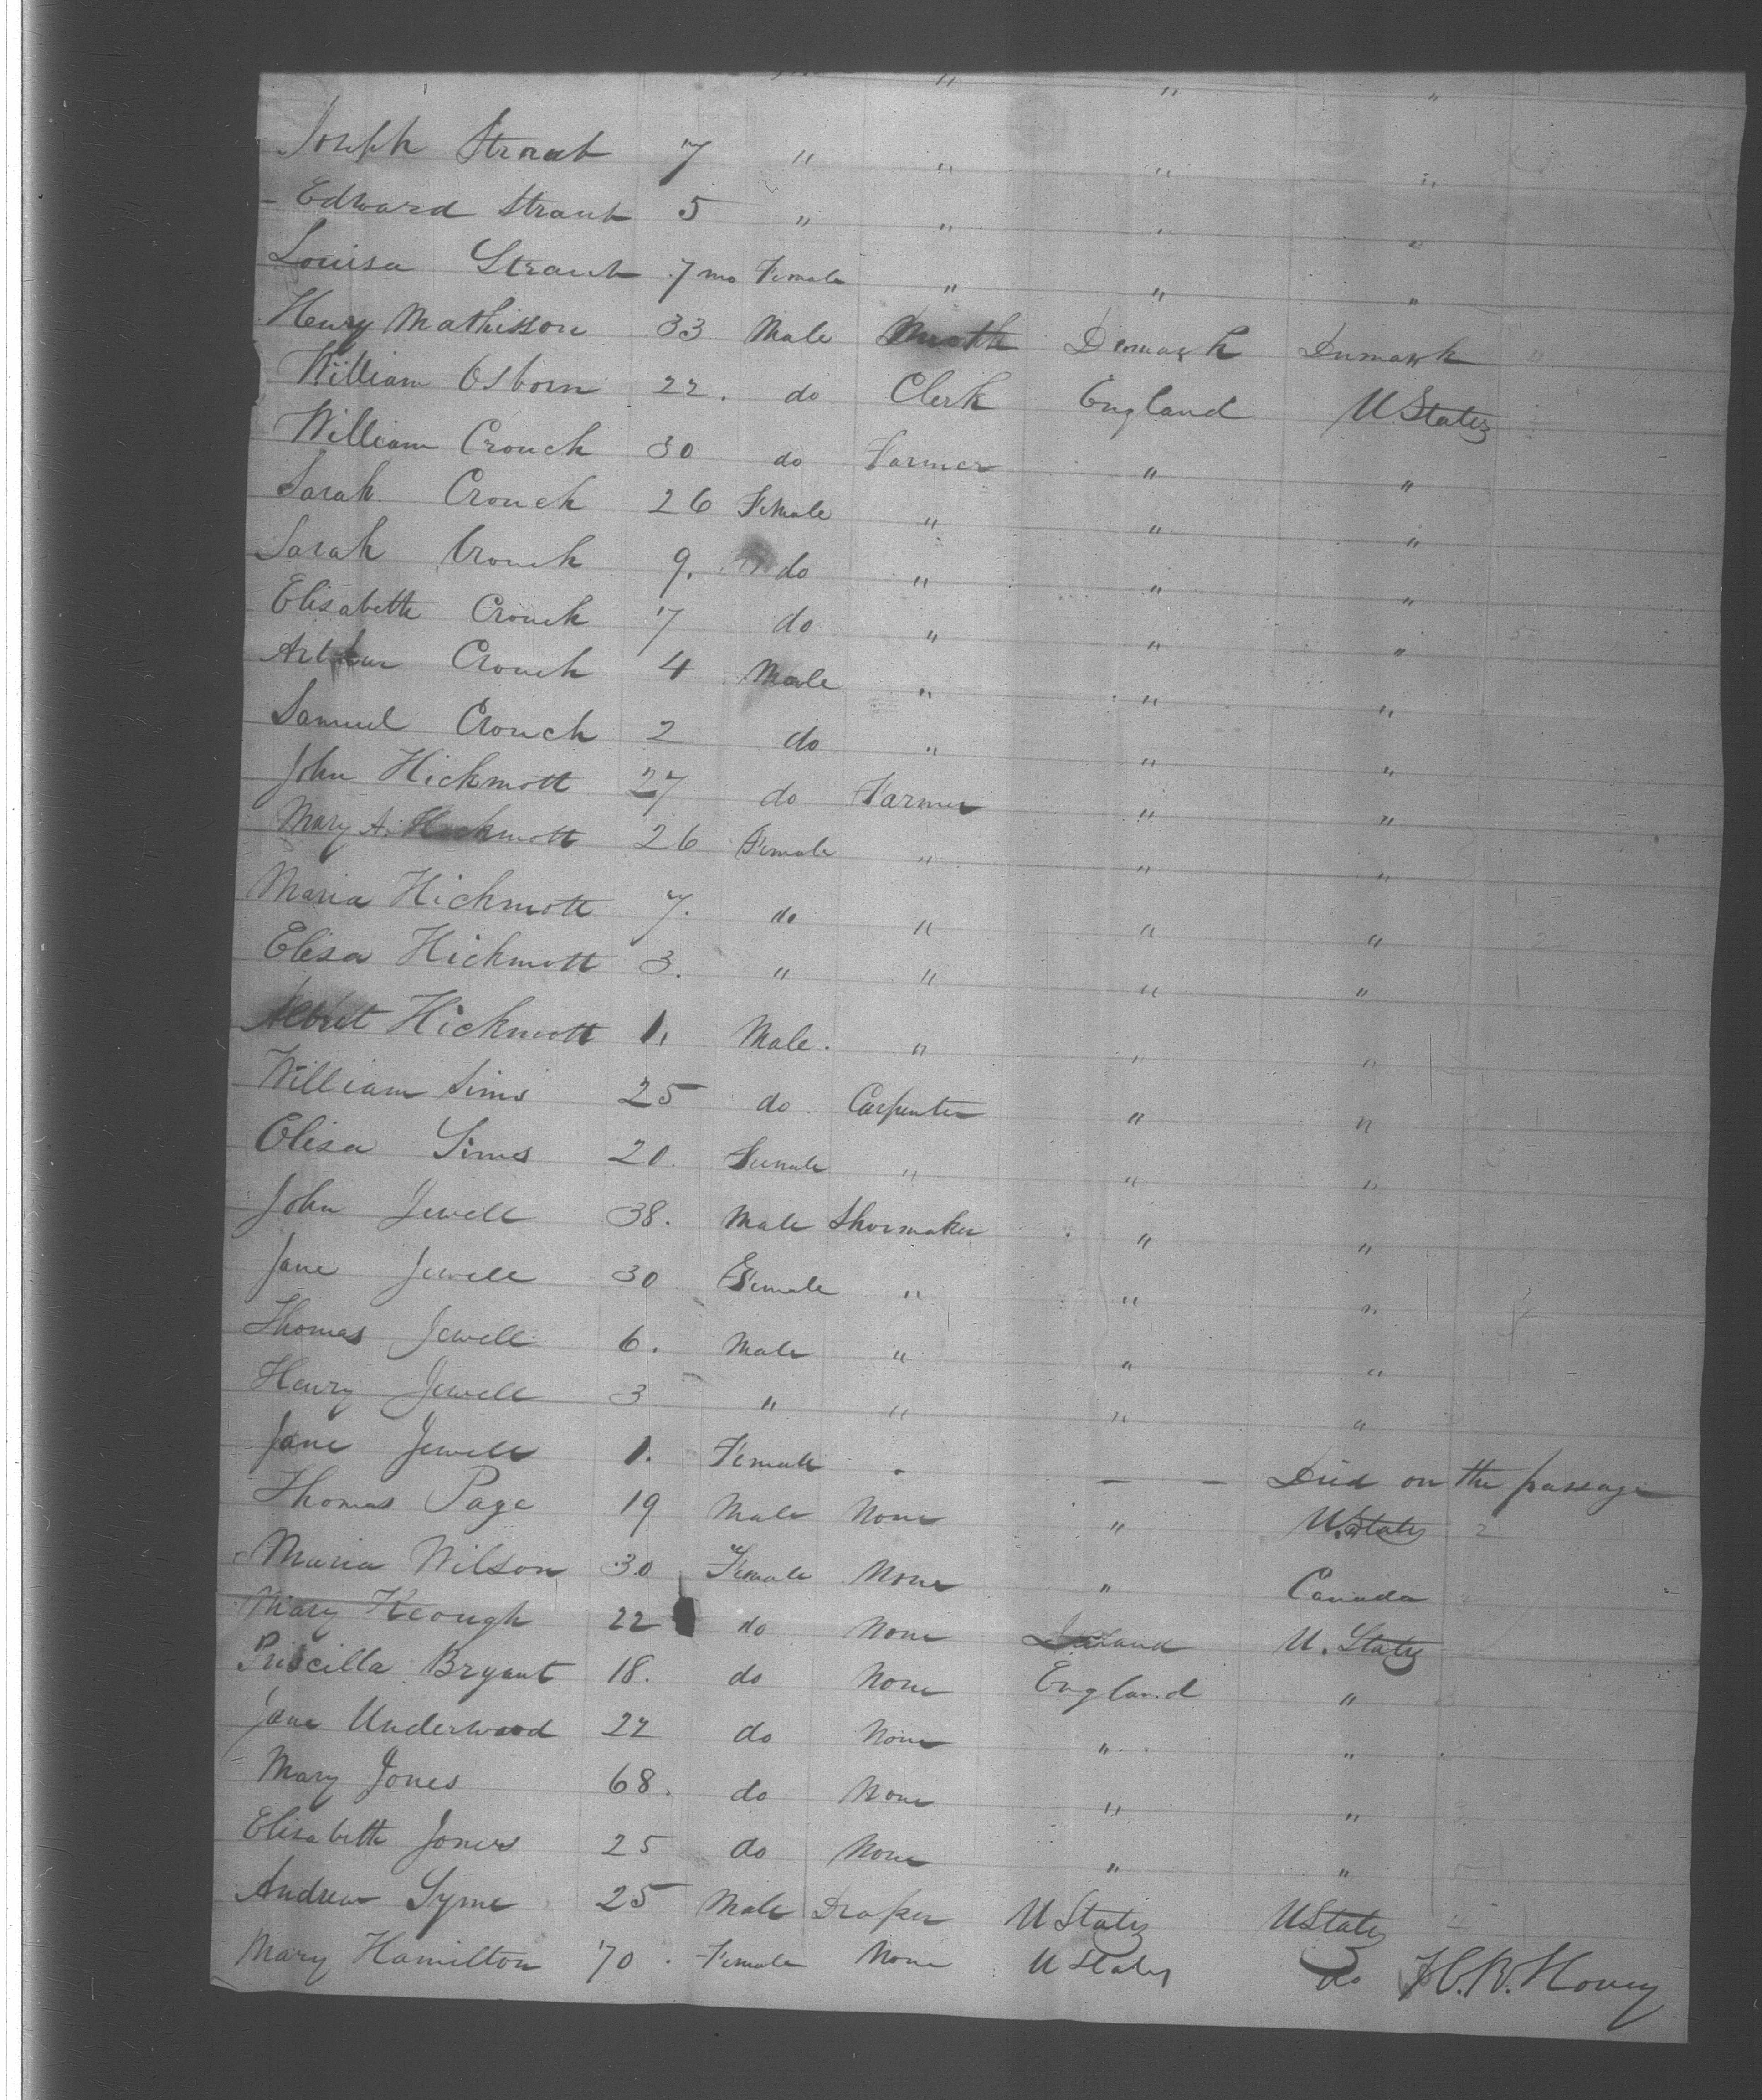 " " "
Joseph Straub 7 " " " "
Edward Straub 5 " " " "
Louisa Straub 7 mo Female " " "
Henry Mathisson 33 Male Denmark Denmark
William Osborn 22. do Clerk England U States
William Crouch 30 do Farmer " "
Sarah Crouch 26 Female " " "
Sarah Crouch 9. do " " "
Elisabeth Crouch 7 do " " "
Arthur Crouch 4 Male " " "
Samuel Crouch 2 do " " "
John Hickmott 27 do Farmer " "
Mary A. Hickmott 26 Female " " "
Maria Hickmott 7. do " " "
Elisa Hickmott 3. " " " "
Albert Hickmott 1. Male. " " "
William Sims 25 do Carpenter " "
Elisa Sims 20. Female " " "
John Jewell 38. Male Shoemaker " "
Jane Jewell 30 Female " " "
Thomas Jewell 6. Male " " "
Henry Jewell 3 " " " "
Jane Jewell 1. Female - - - Died on the passage
Thomas Page 19 Male None " U. States 2
Maria Wilson 30 Female None " Canada
Mary Keough 22 do None Ireland U. States
Priscilla Bryant 18. do None England "
Jane Underwood 22 do None " "
Mary Jones 68. do None " "
Elisabeth Jones 25 do None " "
Andrew Syme 25 Male Draper U States U States
Mary Hamilton 70. Female None U States do H. B. Hovey